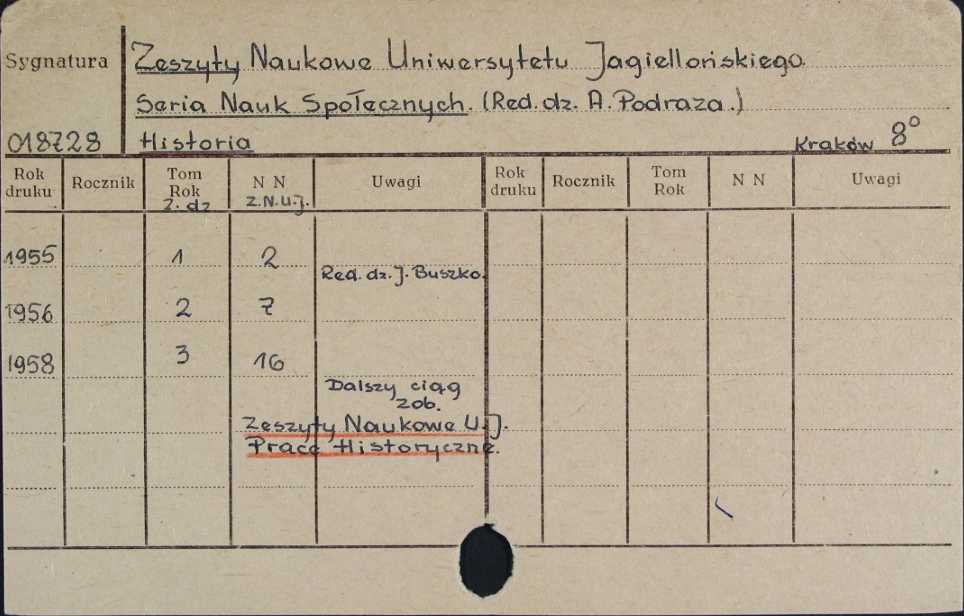 Sygnatura
Zeszyty Naukowe Uniwersytetu Jagiellońskiego.
Seria Nauk Społecznych. (Red. dz. A. Podraza.)
018728 Historia Kraków 8°
Rok druku Rocznik Tom Rok Z. dz N N Z.N.U.J. Uwagi Rok druku Rocznik Tom Rok N N Uwagi
1955 1 2 Red. dz. J. Buszko.
1956 2 7
1958 3 16
Dalszy ciąg
zob.
Zeszyty Naukowe U.J.
Prace Historyczne.